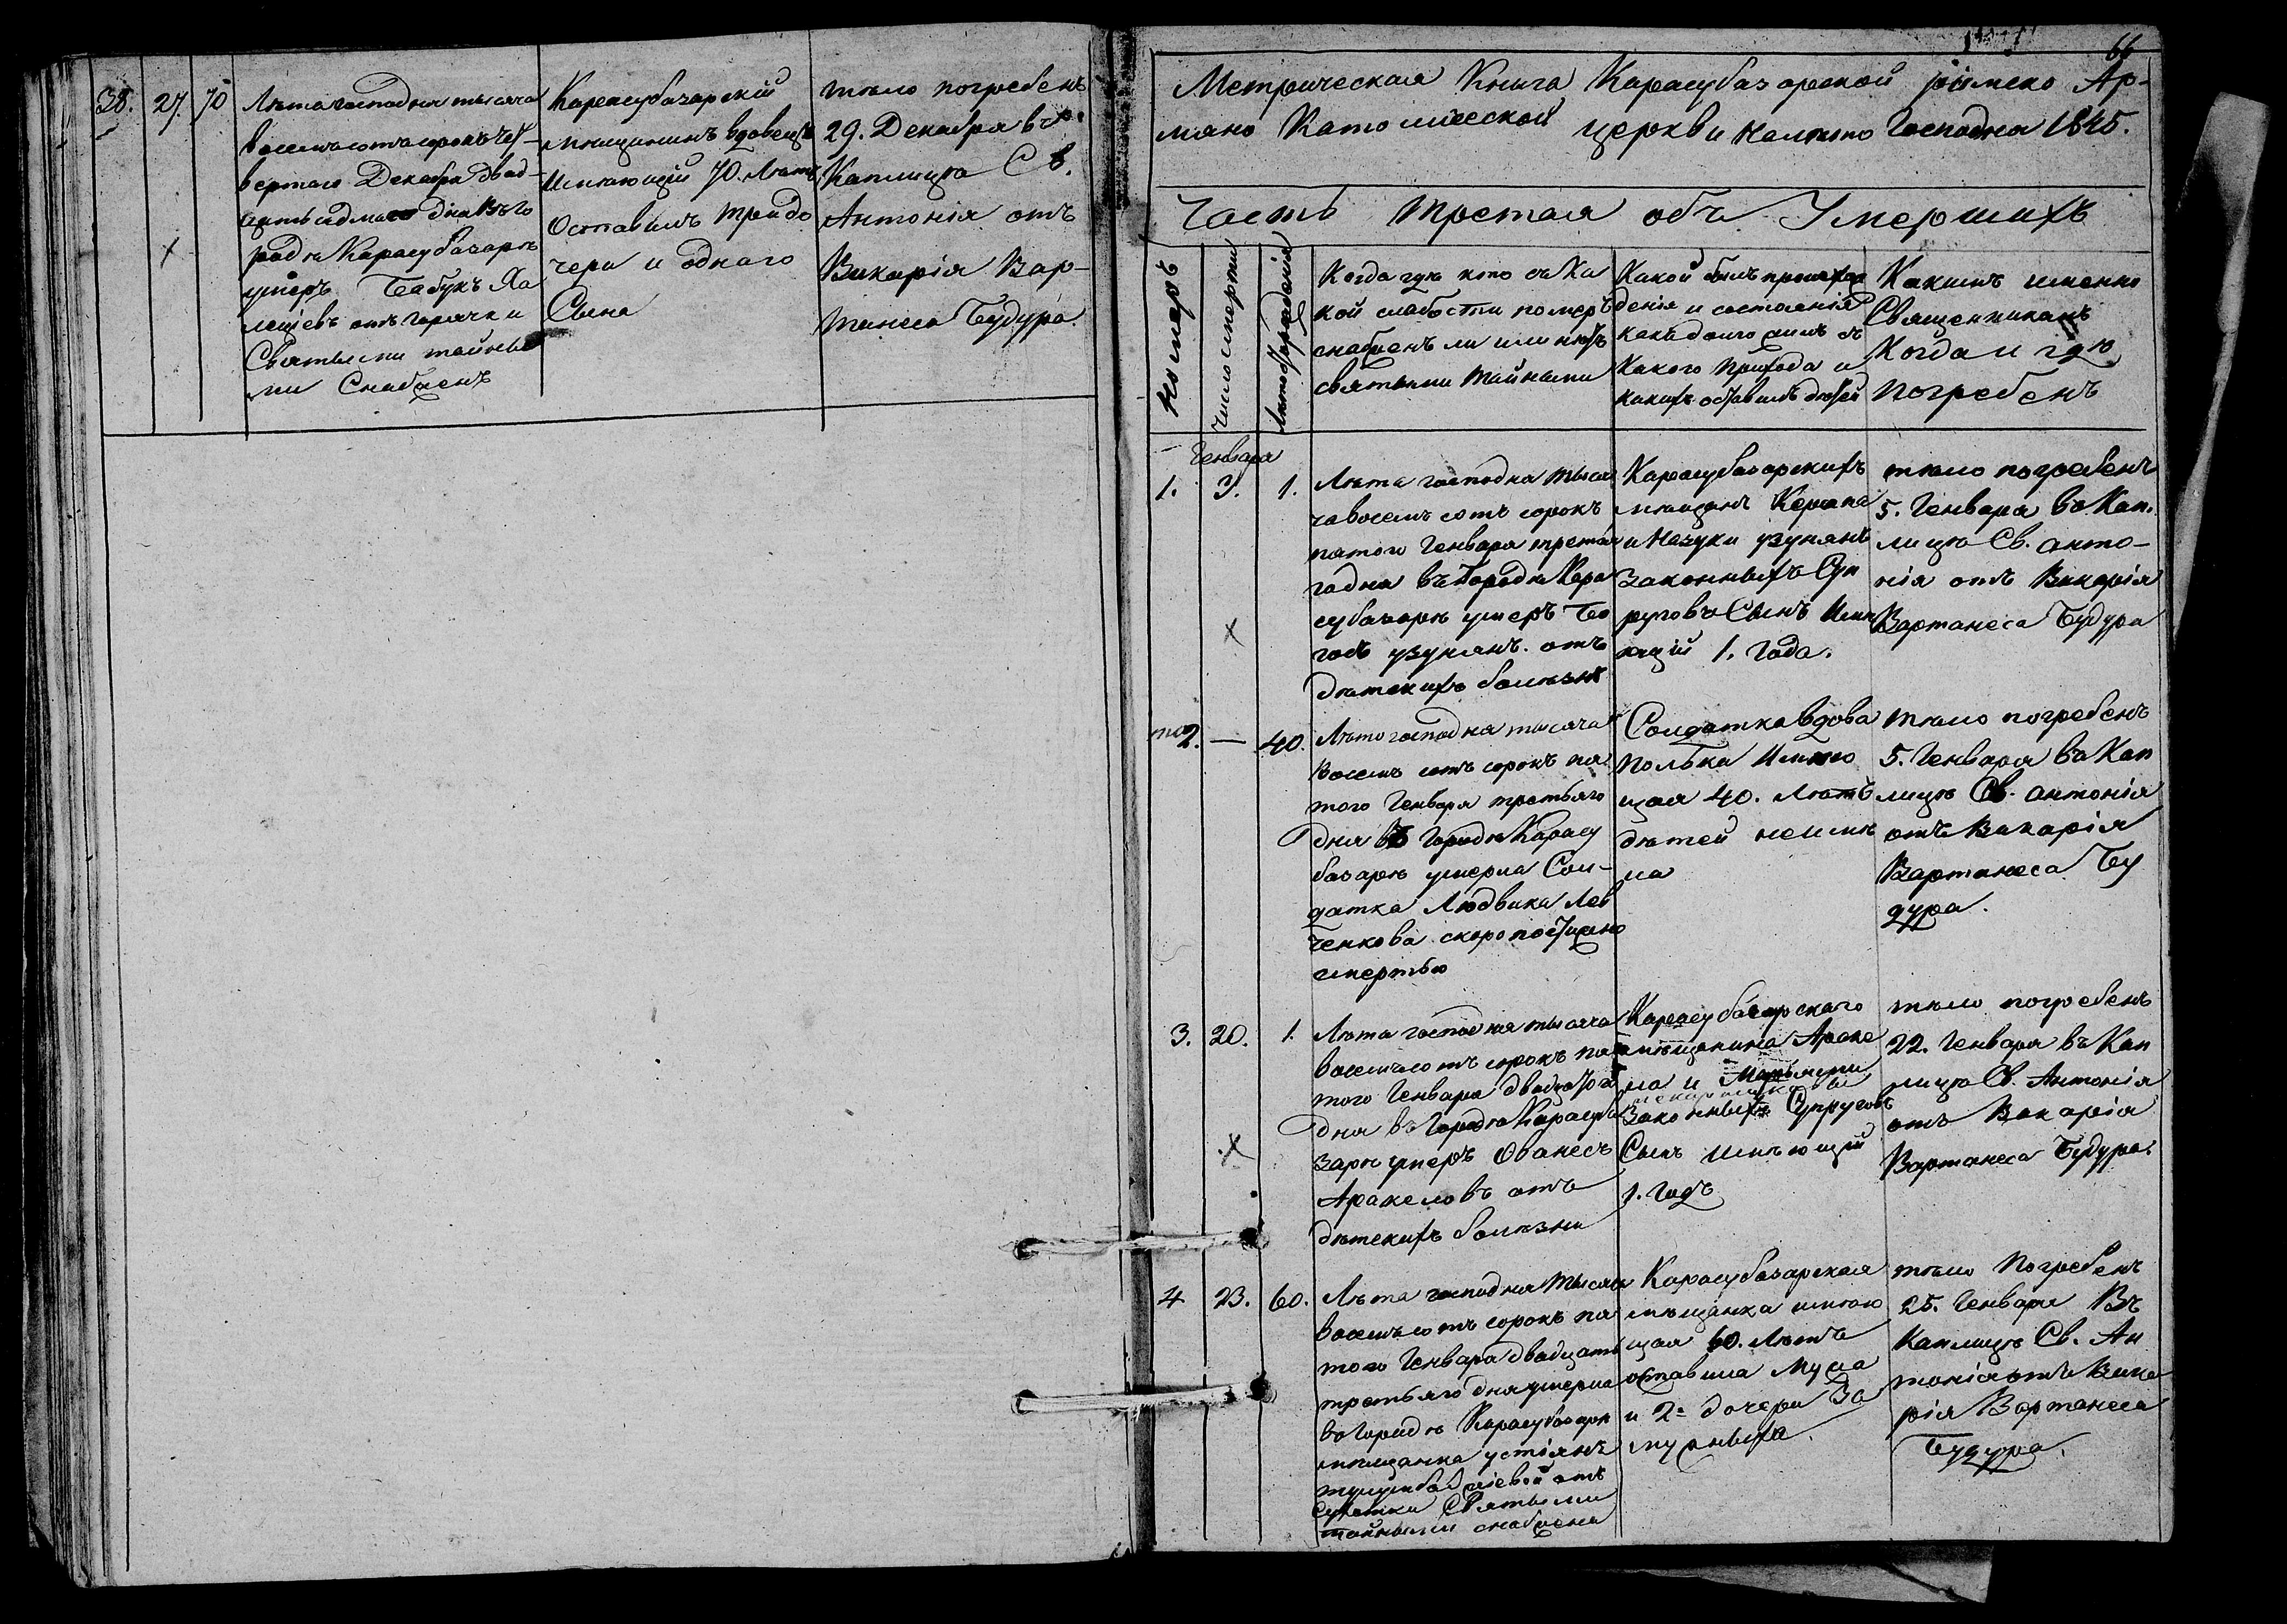 38. 27. 70
Лѣта господня тысяча
восемьсотъ сорокъ чет-
вертаго Декабря двад-
цать седмаго дня въ го
родѣ Карасубазарѣ
умеръ Бабукъ Ха
лещевъ отъ горячки
Святыми тайны
ми Снабденъ
Карасубазарскій
мѣщанинъ вдовецъ
Имѣющій 70. Лѣтъ
Оставилъ три до
чери и одного
Сына
тѣло погребенъ
29. Декабря въ
Каплицѣ Св.
Антонія отъ
Викарія Вар-
танеса Будура.
66
Метрическая Книга Карасубазарской римско Ар-
мяно Католической церкви на лѣто Господня 1845.
Часть третая объ Умершихъ
Номеръ
Число смерти
Лѣто рожденія
Когда гдѣ кто съ Ка
кой слабости померъ
снабденъ ли или нѣтъ
святыми тайными
Какой былъ происхож
денія и состоянія
какъ долго жилъ съ
Какого прихода и
какихъ оставилъ дѣтей
Какимъ именно
Священникамъ
Когда и гдѣ
погребенъ
Генваря
1. 3. 1.
Лѣта господня тыся
ча восемь сотъ сорокъ
пятого Генваря третья
го дня въ Городѣ Кара
субазарѣ умеръ Бо
госъ узунянъ. отъ
дѣтскихъ болѣзнѣ
Карасубазарскихъ
мѣщанъ Керопа
и Назуки узунянъ
законныхъ Суп
руговъ Сынъ Имѣ
ющій 1. года.
тѣло погребенъ
5. Генваря въ Кап.
лицѣ Св. анто-
нія отъ Викарія
Вартанеса Будура
2. — 40.
Лѣто господня тысяча
Восемь сотъ сорокъ пя
того Генваря третьяго
дня въ Городѣ Карасу
базарѣ умерла Сол-
датка Людвика Лев
ченкова скоропостижно
смертью
Солдатка вдова
полька Имѣю
щая 40. Лѣтъ
дѣтей неимѣ
ла
тѣло погребенъ
5. Генваря въ Кап
лицѣ Св. антонія
отъ Викарія
Вартанеса Бу
дура.
3. 20. 1.
Лѣта господня тысяча
восемьсотъ сорокъ пя
того Генваря двадцатого
дня въ Городѣ Карасуба
зарѣ умеръ Ованесъ
Аракеловъ отъ
дѣтскихъ болѣзни
Карасубазарского
мѣщанина Араке
ла и
законныхъ Супруговъ
Сынъ имѣющій
1. годъ
тѣло погребенъ
22. Генваря въ Кап
лицѣ Св. Антонія
отъ Викарія
Вартанеса Будура.
4 23. 60.
Лѣта господня тысяча
восемьсотъ сорокъ пя
того Генваря двадцать
третьяго дня умерла
въ Городѣ Карасубазарѣ
мѣщанка устіянъ
отъ
Святыми
тайными снабдена
Карасубазарская
мѣщанка имѣю
щая 60. Лѣтъ
оставила мужа
и 2= дочери За
мужныхъ.
тѣло Погребенъ
25. Генваря Въ
Каплицѣ Св. Ан
тонія отъ Вика
рія Вартанеса
Будура.